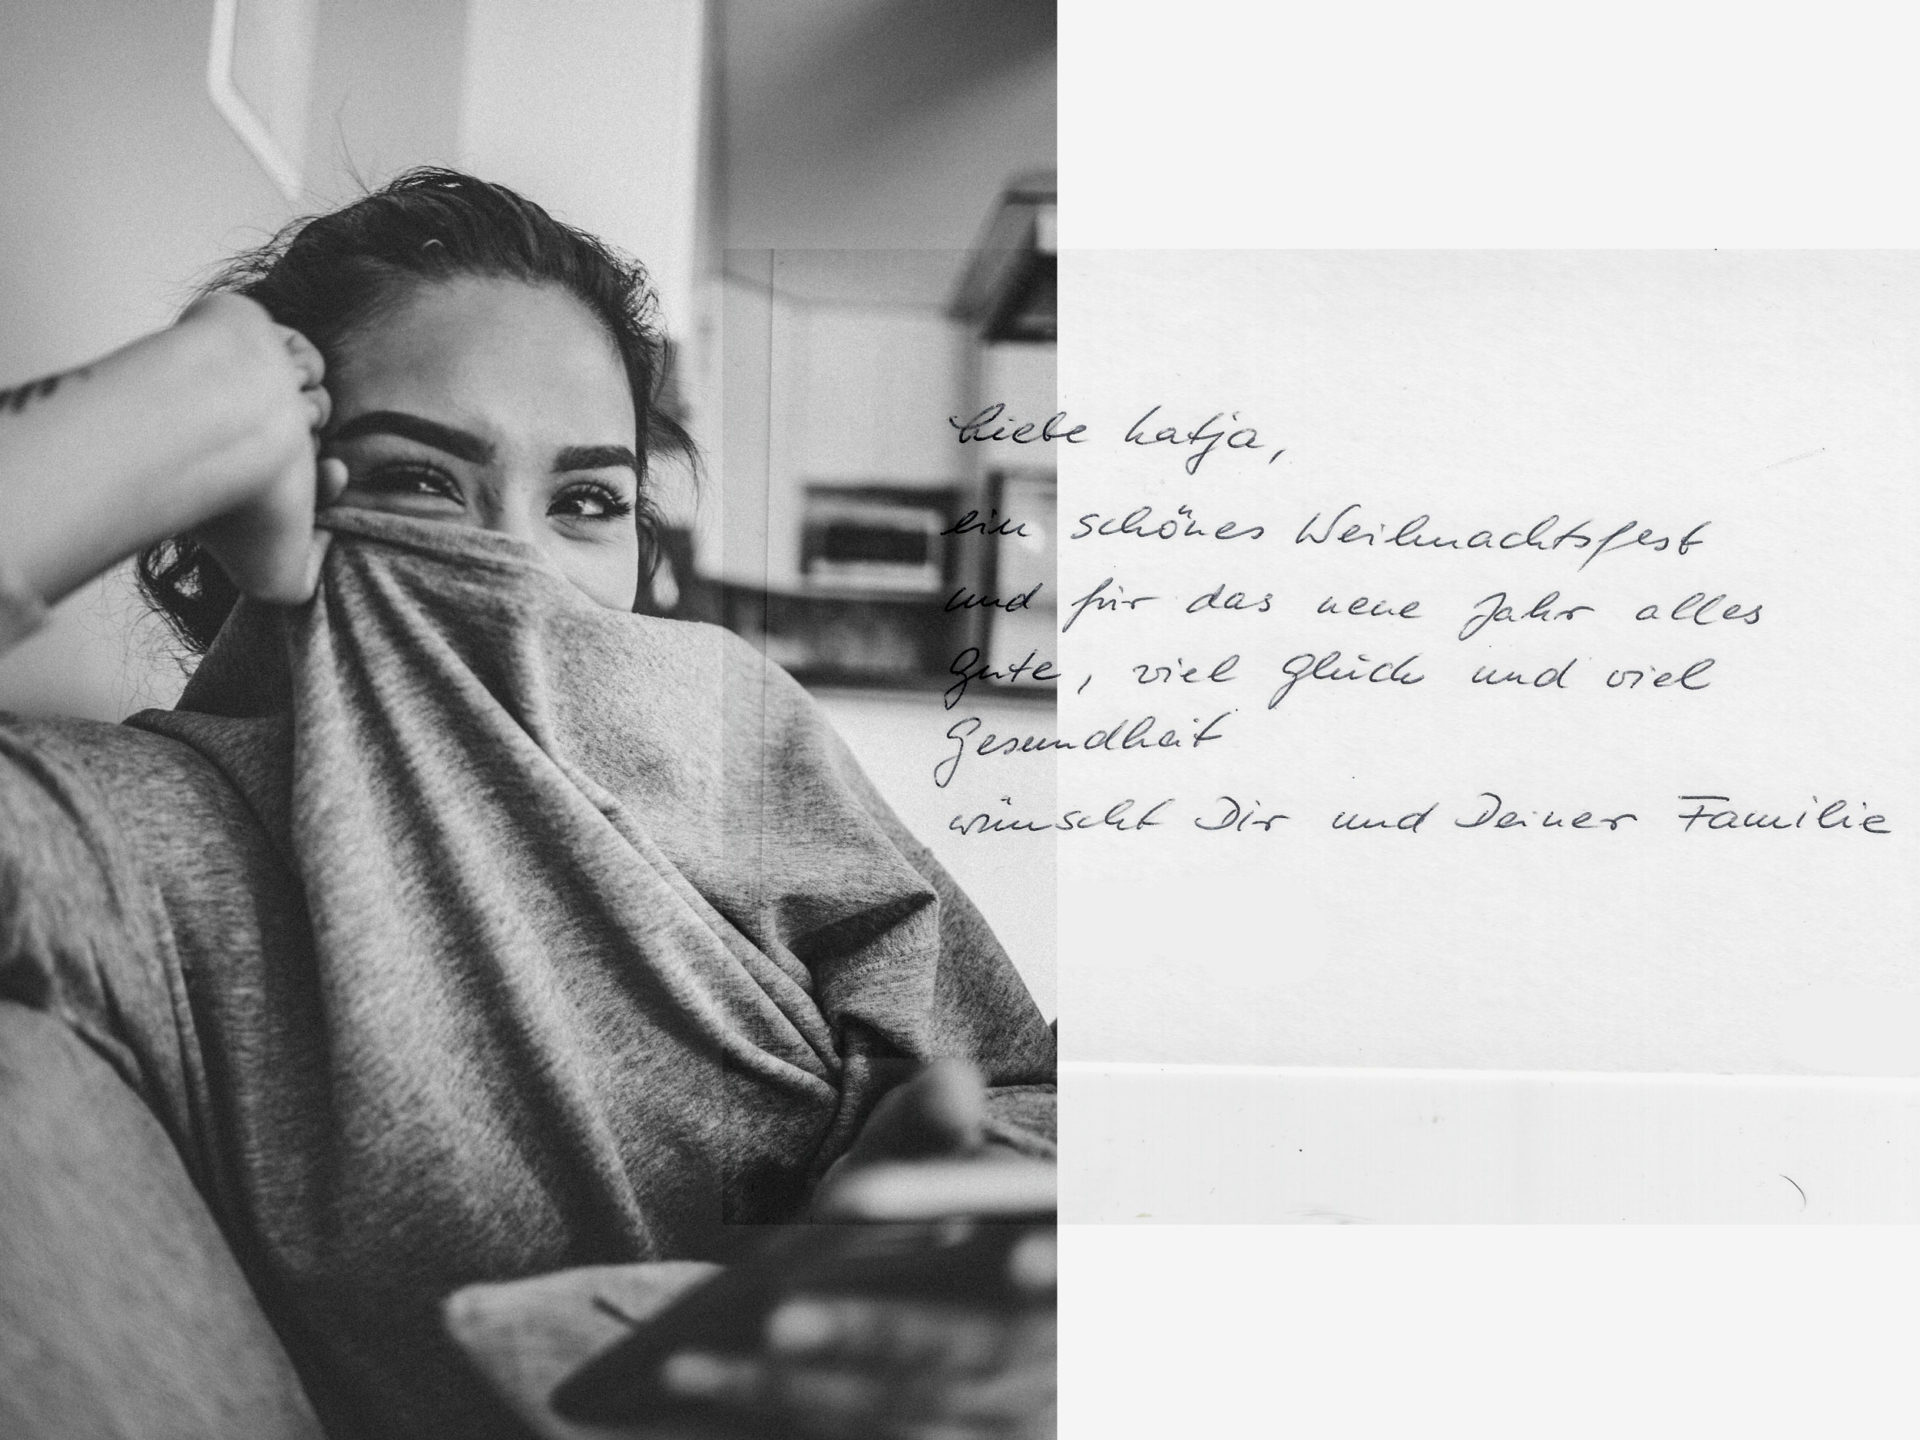 Liebe Katja,
ein schönes Weihnachtsfest
und für das neue Jahr alles
Gute, viel Glück und viel
Gesundheit
wünscht Dir und Deiner Familie